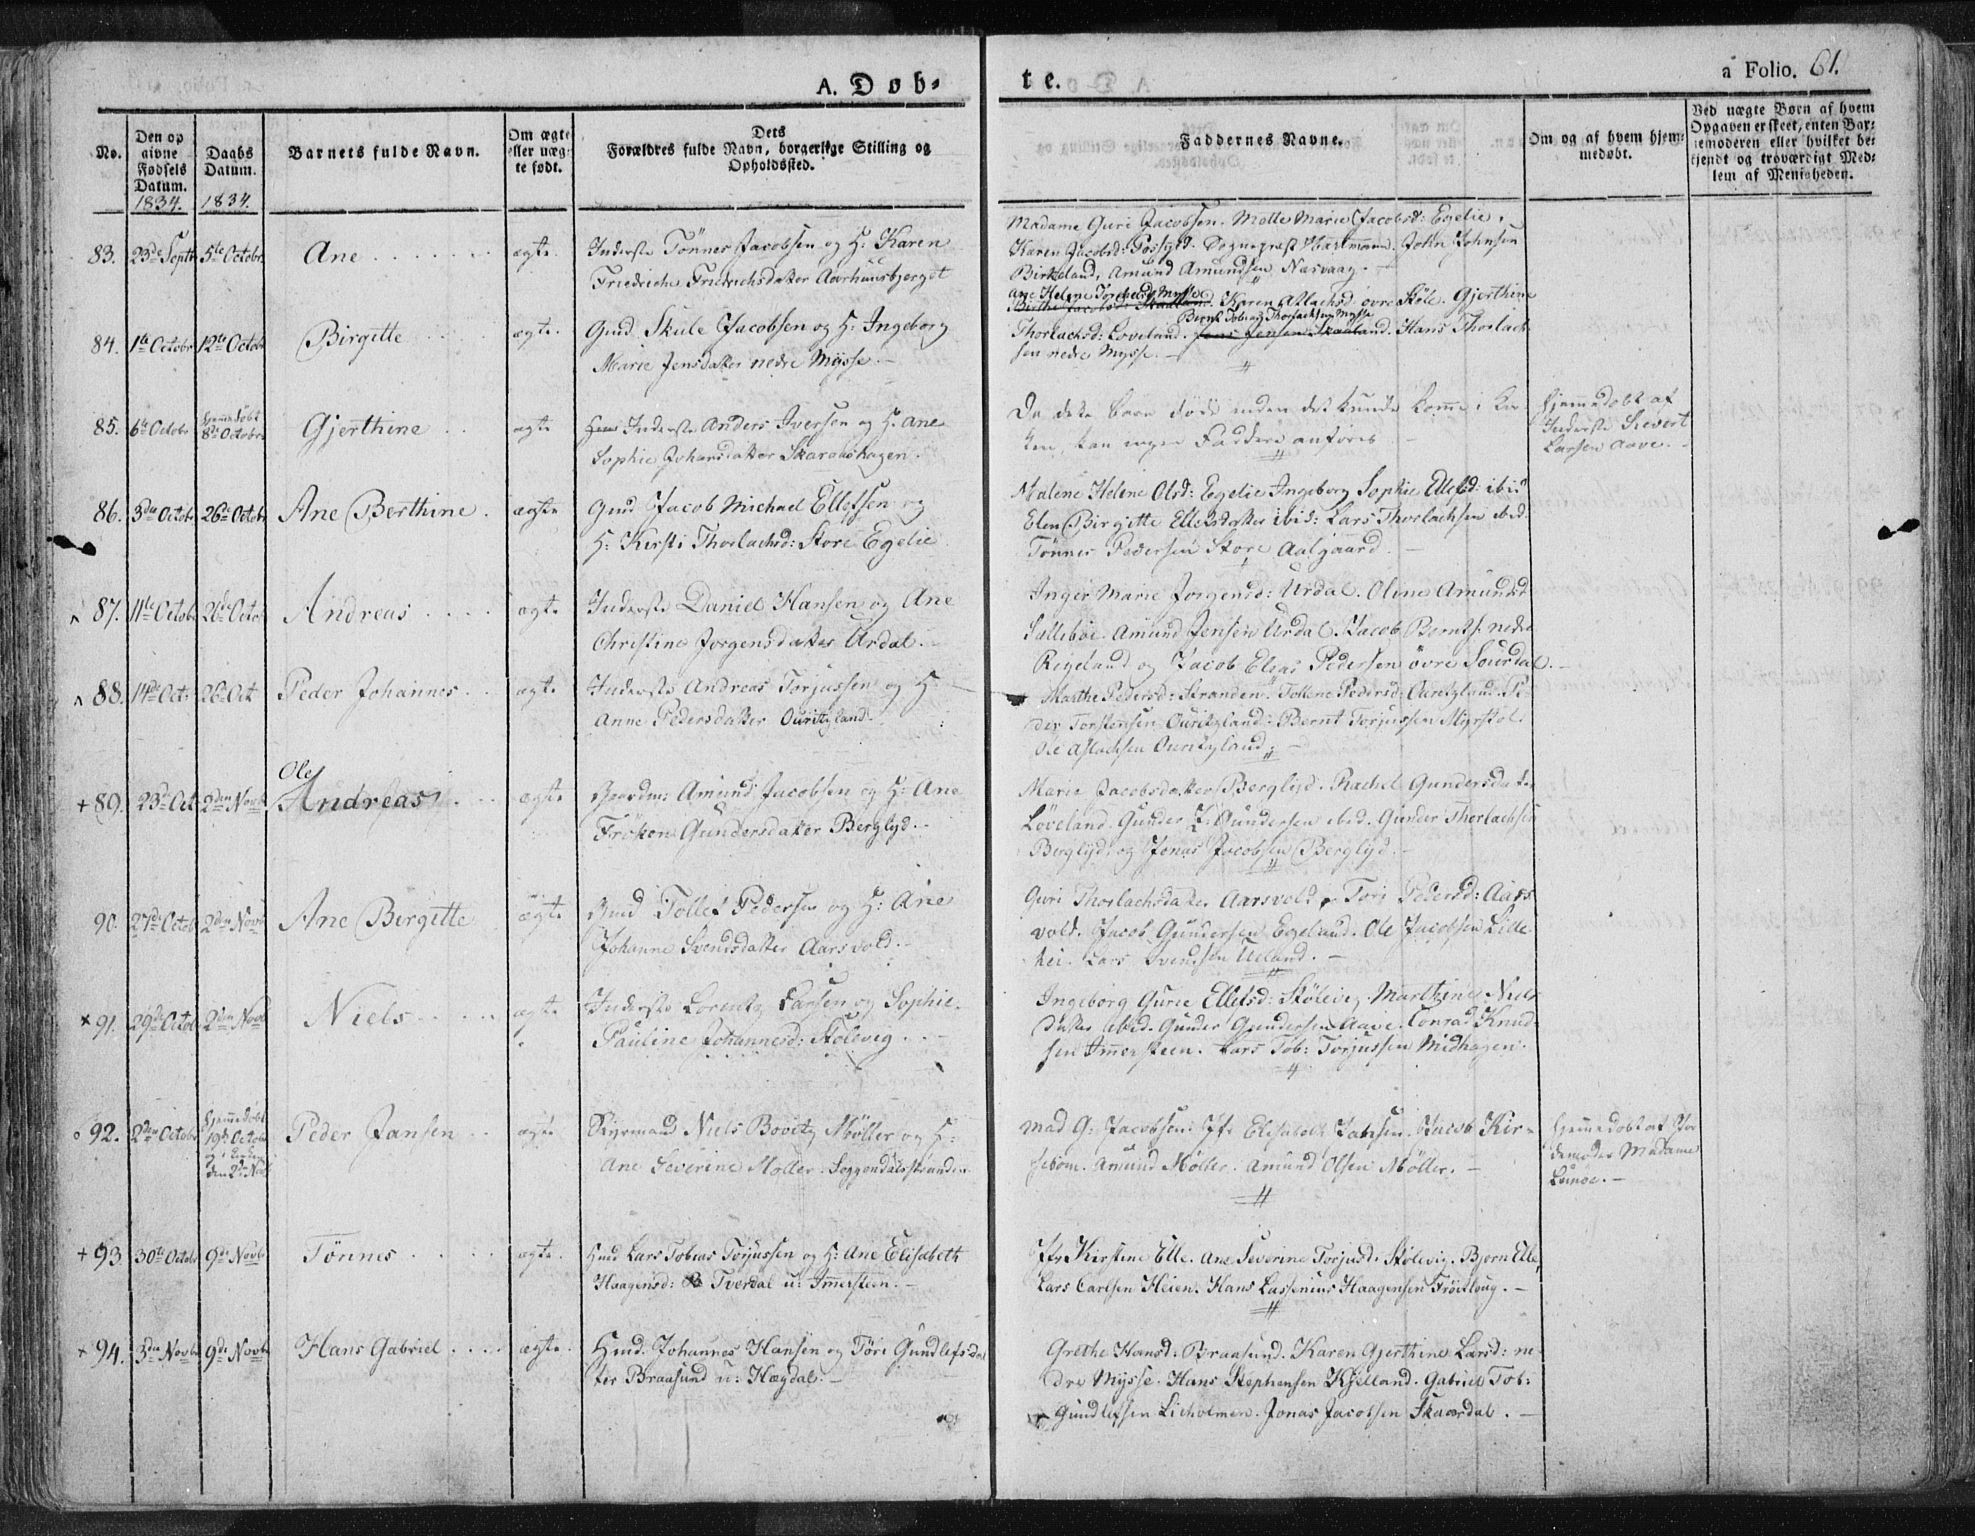 A. Døb-
te.
a Folio. 61.
No.
Den op
givne
Fødsels
Datum.
1834.
Daabs
Datum.
1834.
Barnets fulde Navn.
Om ægte
eller uæg-
te født.
Dets
Forældres fulde Navn, borgerlige Stilling og
Opholdssted.
Faddernes Navne.
Om og af hvem hjem-
medøbt.
Ved uægte Børn af hvem
Opgaven er skeet, enten Bar-
nemoderen eller hvilket be-
kjendt og troværdigt Med-
lem af Menigheden.
83. 23de Septb 5te Octobr Ane ægte
Inderste Tönnes Jacobsen og H: Karen
Friedriche Friedrichsdatter Aarhuusbjerget
Madame Guri Jacobsen. Marie Jacobsd: Egelie.
Karen Jacobsd: Sognepræst Hartmann. John Johnsen
Birkeland, Amund Amundsen Næsvaag.
84. 1te Octobr 12te Octobr Birgitte ægte.
Gmd. Skule Jacobsen og H: Ingeborg
Marie Jensdatter nedre Mysse.
ane Helene Mysse
Karen Aslachsd: övre Stöle. Gjerthine
Bernt Tobias Thorlachsen Mysse
Thorlachsd: Löveland. Jens Jensen Skaaland. Hans Thorlach
sen nedre Mysse.
85. 6te Octobr Hjemmedöbt
8de Octobr Gjerthine ægte
Inderste Anders Iversen og H: Ane
Sophie Johansdatter Skaraashagen.
Da dette barn döde inden det kunde komme i Kir
ken, kan ingen Faddere anföres
Hjemmedöbt af
Inderste Sievert
Larsen Aave.
86. 3die Octobr 26de Octobr Ane Berthine ægte
Gmd Jacob Michael Ellefsen og
H: Kirsti Thorlachsd: Store Egelie
Malene Helene Olsd: Egelie Ingeborg Sophie Ellefsd: ibid
Elen Birgitte Ellefsdatter ibid: Lars Thorlachsen ibid
Tönnes Pedersen Store Aalgaard.
87. 11te Octobr 26de Octobr Andreas ægte
Inderste Daniel Hansen og Ane
Christine Jorgensdatter Urdal.
Inger Marie Jorgensd: Urdal. Oline Amundsd
Sælleboe. Amund Jensen Urdal. Jacob Bernts: nedre
Regeland og Jacob Elias Pedersen övre Sourdal.
88. 14de Oct: 26de Oct Peder Johannes ægte
Inderste Andreas Torjussen og H:
Anne Pedersdatter Ouritzland.
Marthe Pedersd: Stranden. Tollene Pedersd: Ouritzland. Pe
der Torstensen Ouritzland. Bernt Torjussen Myrstöl.
Ole Aslachsen Ouritzland.
89. 23de Oct 2den Novb Ole
Andreas ægte
Gaardm: Amund Jacobsen og H: Ane
Tröken Gundersdatter Berglyd.
Marie Jacobsdatter Berglyd. Rachel Gundersdatter
Löveland. Gunder Gundersen ibid. Gunder Thorlachsen
Berglyd, og Jonas Jacobsen Berglyd.
90. 27de Octob 2den Novb Ane Birgitte ægte
Gmd Tollef Pedersen og H: Ane
Johanne Svendsdatter Aarsvold.
Guri Thorlachsdatter Aarsvold Torj Pedersd: Aars
vold. Jacob Gundersen Egeland. Ole Jacobsen Lille
hei. Lars Svendsen Ueland.
91. 29de Octob 2den Novb Niels ægte
Inderste Lorentz Larsen og Sophie
Pauline Johannesd: Stölevig.
Ingeborg Gurie Ellefsd: Stölevig. Marthine Niels
datter ibid. Gunder Gundersen Aave. Conrad Knud-
sen Immersteen. Lars Tob: Torjussen Midhagen.
92. 2den Octobr Hjemmedöbt
19de Octob
og i Kirken
den 2den Novb Peder Jansen ægte
Skrmand Niels Bovitz Möller og H:
Ane Severine Möller. Soggendalsstrand.
Mad G. Jacobsen. Jfr Elisabeth Jansen. Jacob Kir-
sebom. Amund Möller. Amund Olsen Möller.
Hjemmedöbt af Jor
demoder Madame
Lunöe.
93. 30te Octob 9de Novb Tönnes ægte.
Hmd Lars Tobias Torjussen og H: Ane Elisabeth
Haagensd: Tverdal u: Immersteen.
Jfr Kirstine Elle. Ane Severine Torjusd. Stölevig. Bjorn Elle
Lars Carlsen Heien. Hans Lassenius Haagensen Fröitloug.
94. 3die Novb 9de Novb Hans Gabriel ægte.
Hmd. Johannes Hansen og Töri Gundlefsdat
ter Braasund u: Hægdal.
Grethe Hansd: Braasund. Karen Gjerthine Larsd: ne
dre Mysse. Hans Stephensen Kjelland. Gabriel Tob:
Gundlefsen Lieholmen. Jonas Jacobsen Skaardal.